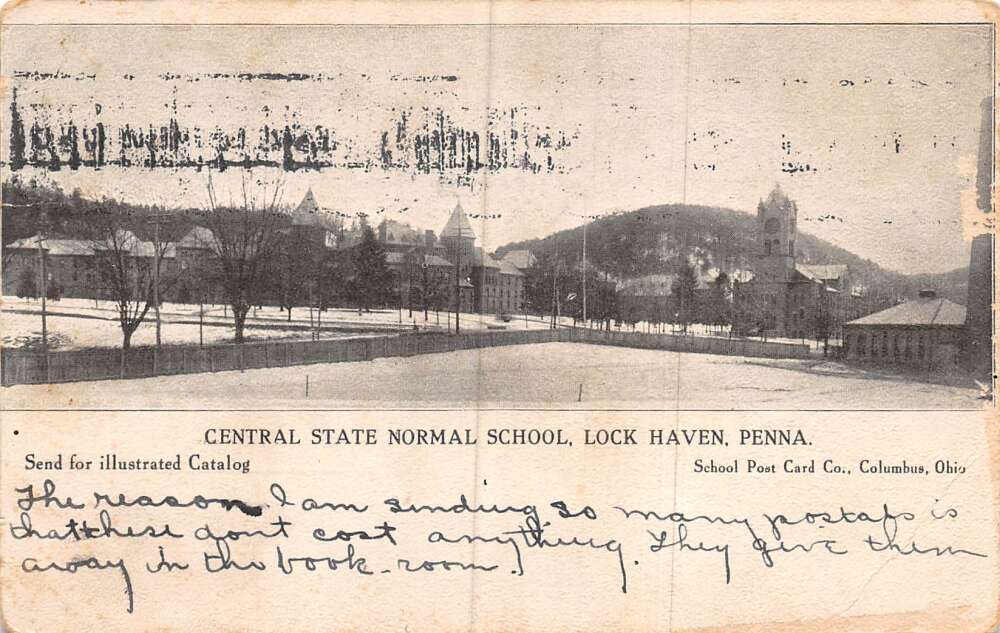 CENTRAL STATE NORMAL SCHOOL, LOCK HAVEN, PENNA.
Send for illustrated Catalog
School Post Card Co., Columbus, Ohio
The reason I am sending so many postals is
that these dont cost anything. They give them
away in the book-room.